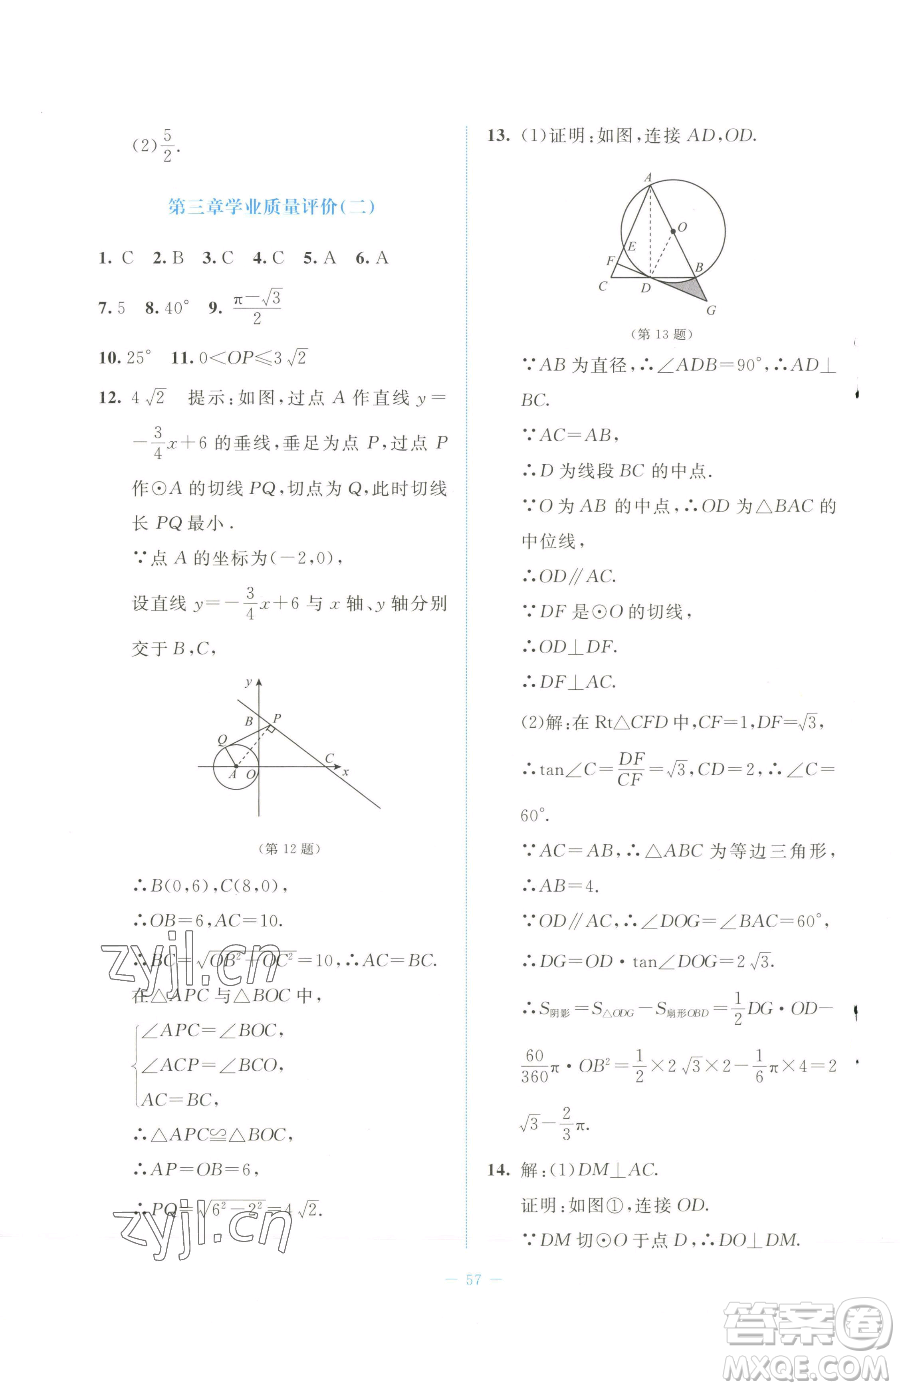 (2) 5/2.
第三章学业质量评价(二)
1. C 2. B 3. C 4. C 5. A 6. A
7. 5 8. 40° 9. (π-√3)/2
10. 25° 11. 0<OP≤3√2
12. 4√2 提示:如图,过点 A 作直线 y=
-3/4x+6 的垂线,垂足为点 P,过点 P
作⊙A 的切线 PQ,切点为 Q,此时切线
长 PQ 最小.
∵点 A 的坐标为(-2,0),
设直线 y=-3/4x+6 与 x 轴、y 轴分别
交于 B,C,
y
B P
Q
C
A O x
(第 12 题)
∴B(0,6),C(8,0),
∴OB=6,AC=10.
∴BC=√(OB²+OC²)=10,∴AC=BC.
在△APC 与△BOC 中,
∠APC=∠BOC,
∠ACP=∠BCO,
AC=BC,
∴△APC≌△BOC,
∴AP=OB=6,
∴PQ=√(6²-2²)=4√2.
13. (1)证明:如图,连接 AD,OD.
A
O
E
F B
C D
G
(第 13 题)
∵AB 为直径,∴∠ADB=90°,∴AD⊥
BC.
∵AC=AB,
∴D 为线段 BC 的中点.
∵O 为 AB 的中点,∴OD 为△BAC 的
中位线,
∴OD∥AC.
∵DF 是⊙O 的切线,
∴OD⊥DF.
∴DF⊥AC.
(2)解:在 Rt△CFD 中,CF=1,DF=√3,
∴tan∠C=DF/CF=√3,CD=2,∴∠C=
60°.
∵AC=AB,∴△ABC 为等边三角形,
∴AB=4.
∵OD∥AC,∴∠DOG=∠BAC=60°,
∴DG=OD·tan∠DOG=2√3.
∴S阴影=S△ODG-S扇形OBD=1/2DG·OD-
60/360π·OB²=1/2×2√3×2-1/6π×4=2
√3-2/3π.
14. 解:(1)DM⊥AC.
证明:如图①,连接 OD.
∵DM 切⊙O 于点 D,∴DO⊥DM.
— 57 —
zyjl.cn
zyjl.cn
答案圈
MXQE.COM